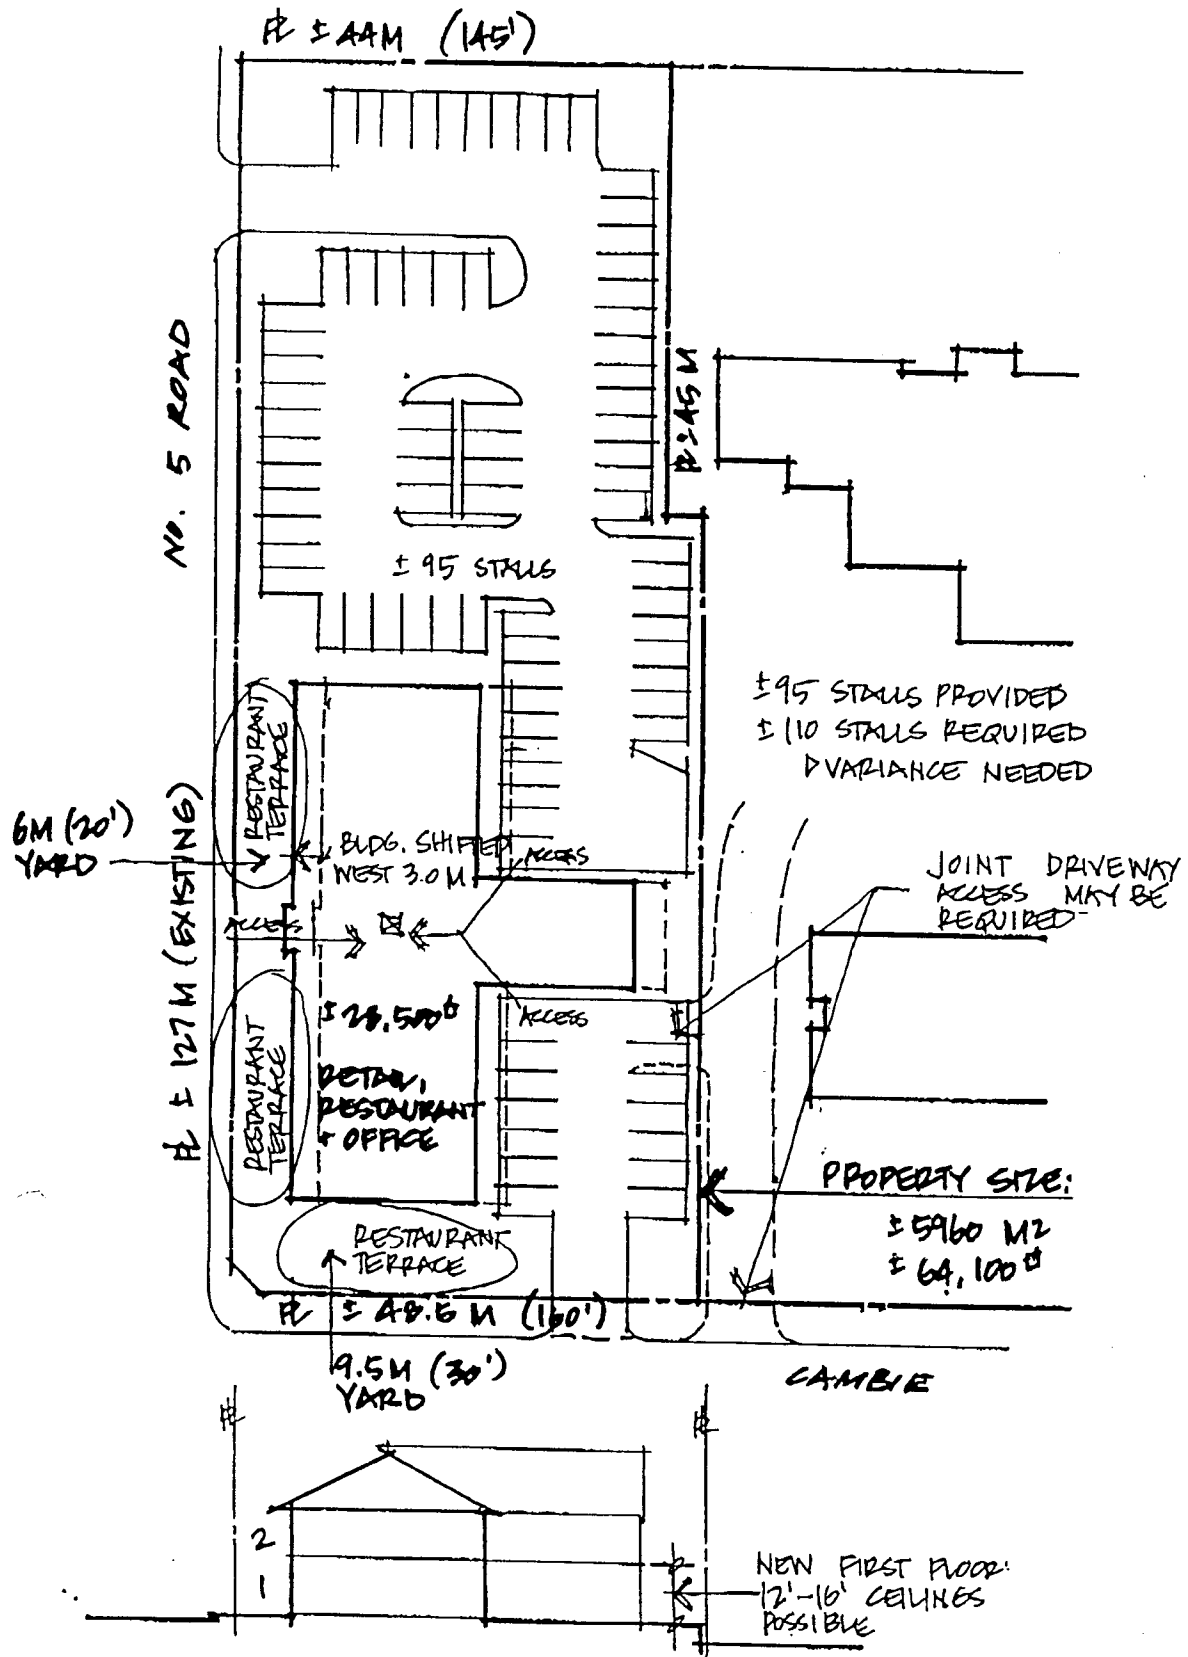 PL ± 44M (145')
No. 5 ROAD
PL ± 45 M
± 95 STALLS
±95 STALLS PROVIDED
±110 STALLS REQUIRED
VARIANCE NEEDED
RESTAURANT
TERRACE
6M (20')
YARD
PL ± 127M (EXISTING)
BLDG. SHIFTED
WEST 3.0 M
ACCESS
ACCESS
JOINT DRIVEWAY
ACCESS MAY BE
REQUIRED
ACCESS
±28,500
RETAIL,
RESTAURANT
+ OFFICE
RESTAURANT
TERRACE
PROPERTY SIZE:
±5960 M2
±64,100
RESTAURANT
TERRACE
PL ± 48.5 M (160')
9.5M (30')
YARD
CAMBIE
PL
PL
2
1
NEW FIRST FLOOR:
12'-16' CEILINGS
POSSIBLE